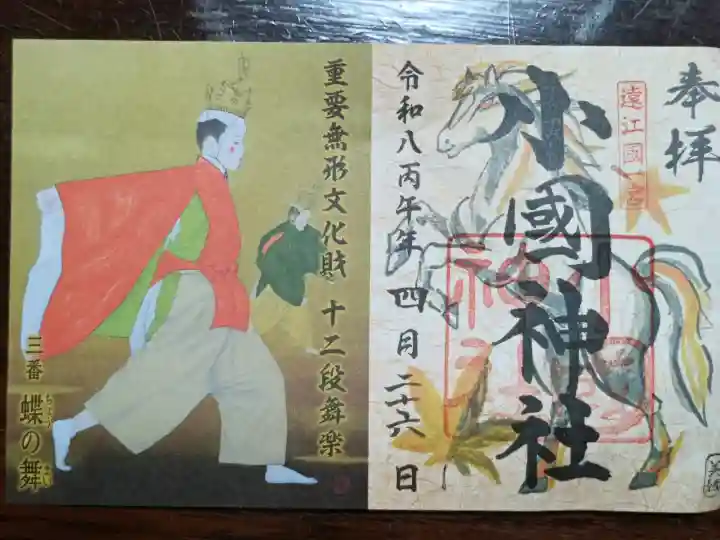 奉拝
遠江國一宮
小國神社
令和八丙午年 四月二十六日
重要無形文化財 十二段舞楽
三番 蝶の舞
ちょう
まい